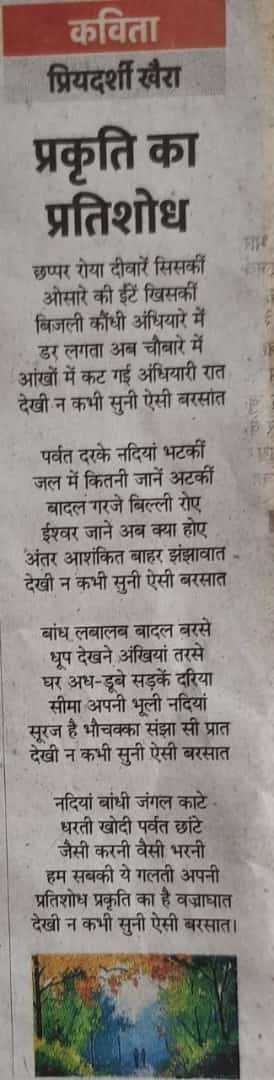 कविता
प्रियदर्शी खैरा
प्रकृति का
प्रतिशोध
छप्पर रोया दीवारें सिसकीं
ओसारे की ईंटें खिसकीं
बिजली कौंधी अंधियारे में
डर लगता अब चौबारे में
आंखों में कट गई अंधियारी रात
देखी न कभी सुनी ऐसी बरसांत
पर्वत दरके नदियां भटकीं
जल में कितनी जानें अटकीं
बादल गरजे बिल्ली रोए
ईश्वर जाने अब क्या होए
अंतर आशंकित बाहर झंझावात
देखी न कभी सुनी ऐसी बरसात
बांध लबालब बादल बरसे
धूप देखने अंखियां तरसे
घर अध-डूबे सड़कें दरिया
सीमा अपनी भूली नदियां
सूरज है भौचक्का संझा सी प्रात
देखी न कभी सुनी ऐसी बरसात
नदियां बांधी जंगल काटे
धरती खोदी पर्वत छांटे
जैसी करनी वैसी भरनी
हम सबकी ये गलती अपनी
प्रतिशोध प्रकृति का है वज्राघात
देखी न कभी सुनी ऐसी बरसात।